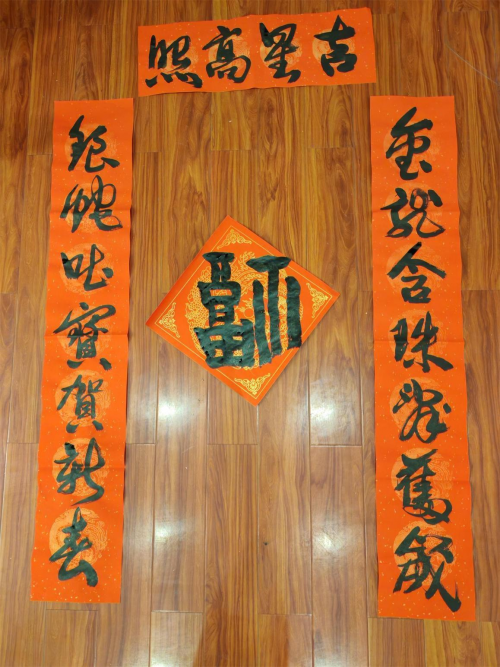 吉星高照
金龍含珠辭舊歲
銀蛇吐寶賀新春
福